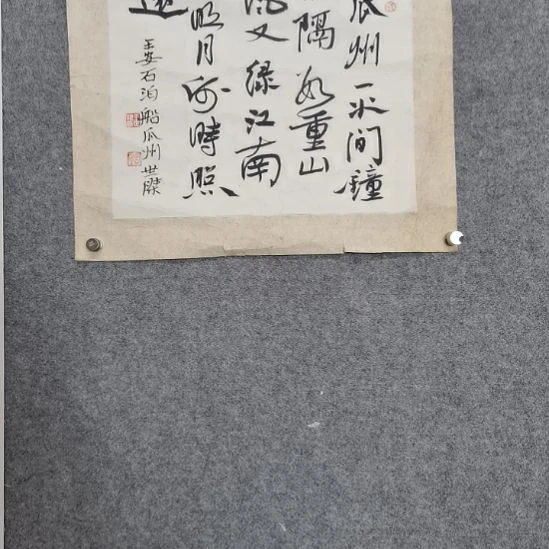 瓜州一水间鐘
隔数重山
风又绿江南
明月何時照
還
王安石泊船瓜州 世傑